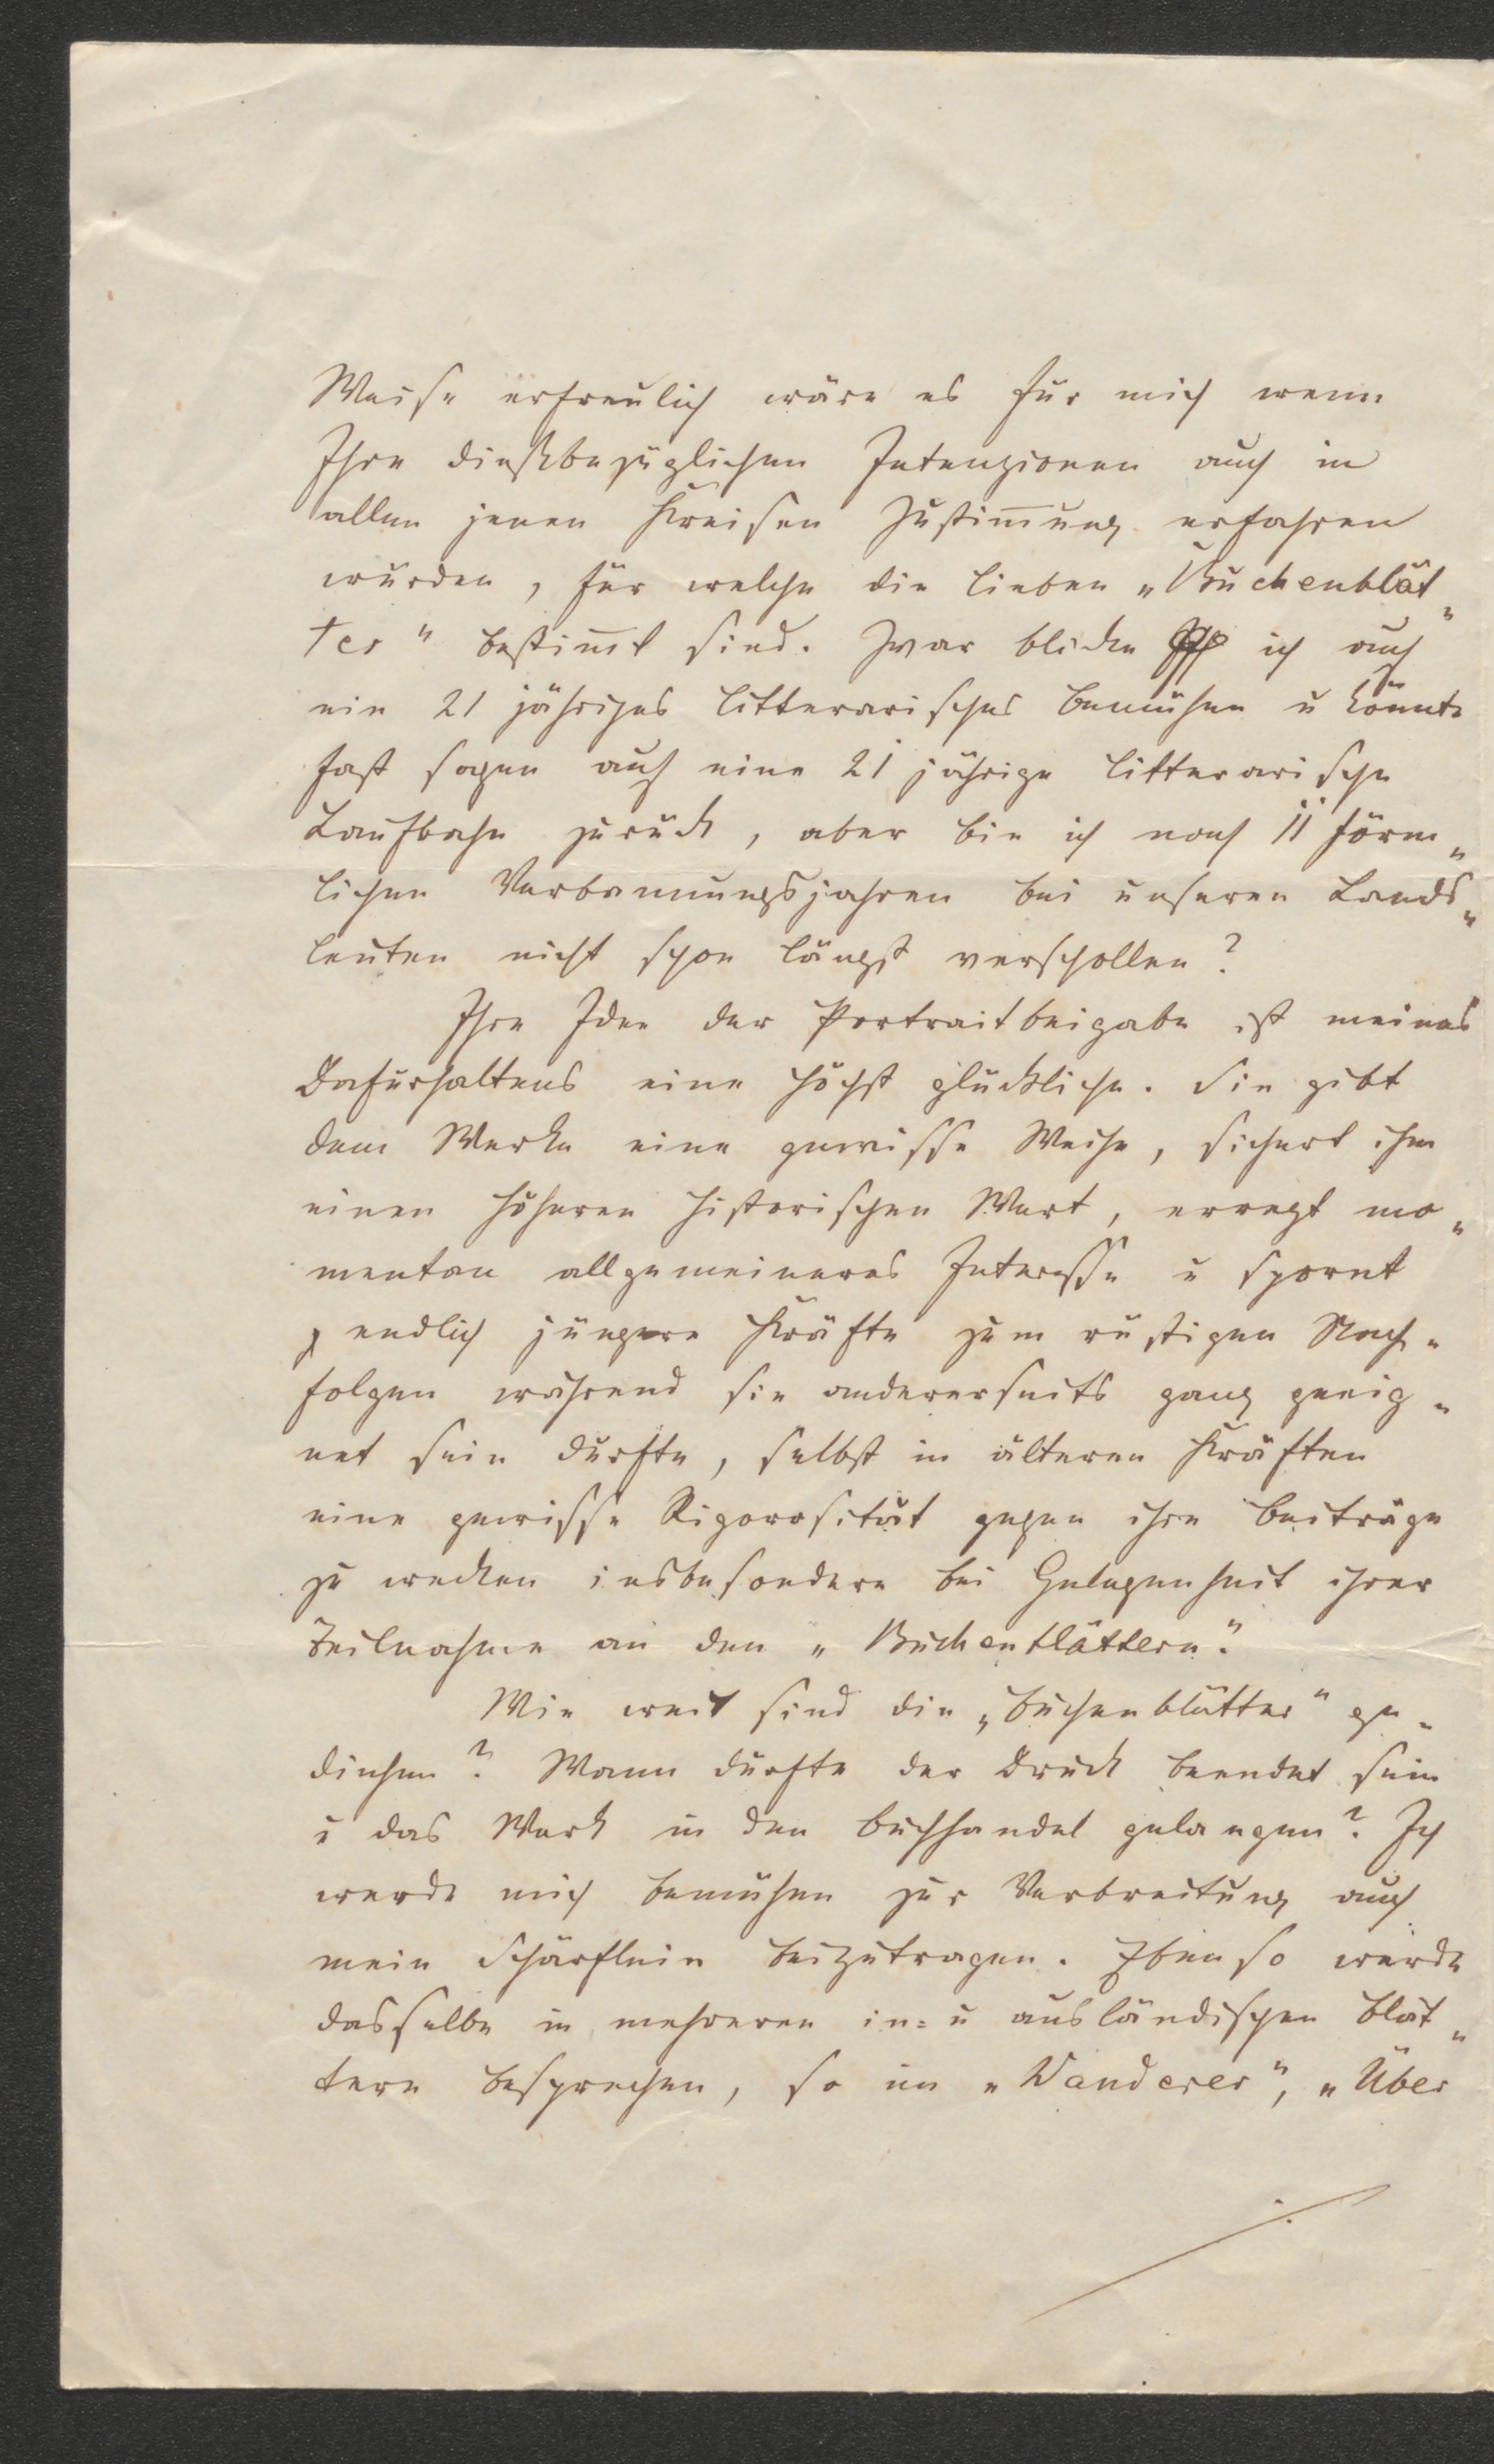 Weise erfreulich wäre es für mich wenn
Ihre dießbezüglichen Intenzionen auch in
allen jenen Kreisen Zustim̄ung erfahren
würden, für welche die lieben „Buchenblät„
ter" bestim̄t sind. Zwar blicke ich auf
ein 21 jähriges litterarisches Bemühen u könnte
fast sagen auf eine 21 jährige litterarische
Laufbahn zurück, aber bin ich nach 11 förm„
lichen Verbannungsjahren bei unseren Lands„
leuten nicht schon längst verschollen?
Ihre Idee der Portraitbeigabe ist meines
Dafürhaltens eine höchst glückliche. Sie gibt
dem Werke eine gewisse Weihe, sichert ihm
einen höheren historischen Wert, erregt mo„
mentan allgemeineres Interesse u spornt
endlich jüngere Kräfte zum rüstigen Nach„
folgen während sie andererseits ganz geeig„
net sein dürfte, selbst in älteren Kräften
eine gewisse Rigorosität gegen ihre Beiträge
zu wecken insbesondere bei Gelegenheit ihrer
Teilnahme an den „Buchenblättern".
Wie weit sind die „Buchenblätter" ge„
diehen? Wann dürfte der Druck beendet sein
u das Werk in den Buchhandel gelangen? Ich
werde mich bemühen zur Verbreitung auch
mein Schärflein beizutragen. Ebenso werde
dasselbe in mehreren in= u ausländischen Blät„
tern besprechen, so im „Wanderer", „Über